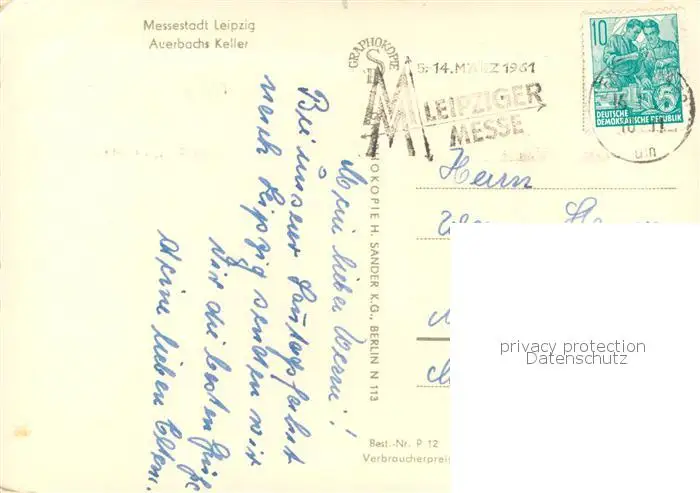 Messestadt Leipzig
Auerbachs Keller
GRAPHOKOPIE
5.-14. MÄRZ 1961
LEIPZIGER
MESSE
10
DEUTSCHE
DEMOKRATISCHE REPUBLIK
Mein lieber
Bei unserer Sonntagsfahrt
nach Leipzig senden wir
Dir die besten Grüße
Deine lieben Eltern.
GRAPHOKOPIE H. SANDER K.G., BERLIN N 113
Herrn
Best.-Nr. P 12
Verbraucherpreis
privacy protection
Datenschutz